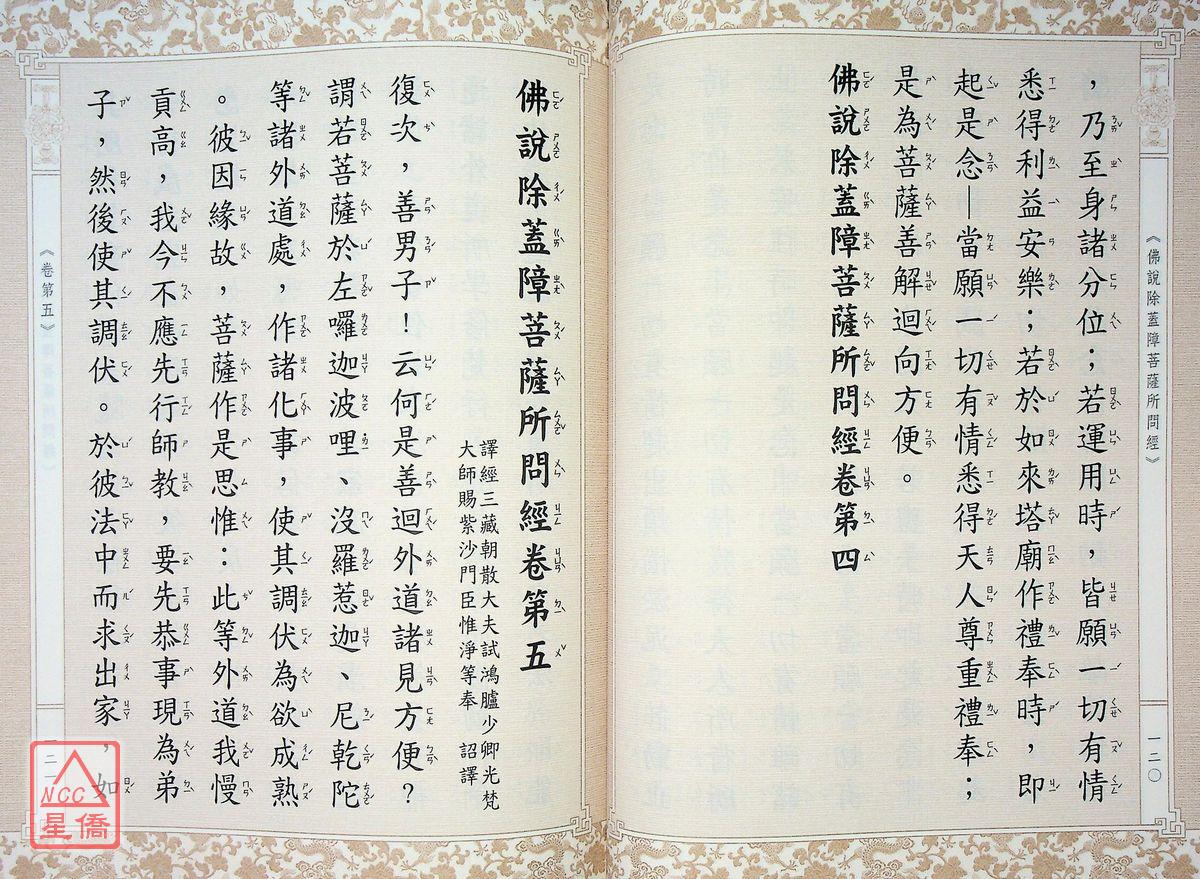 《佛說除蓋障菩薩所問經》
一二〇
，乃至身諸分位；若運用時，皆願一切有情
悉得利益安樂；若於如來塔廟作禮奉時，即
起是念—當願一切有情悉得天人尊重禮奉；
是為菩薩善解迴向方便。
佛說除蓋障菩薩所問經卷第四
佛說除蓋障菩薩所問經卷第五
譯經三藏朝散大夫試鴻臚少卿光梵
大師賜紫沙門臣惟淨等奉　詔譯
復次，善男子！云何是善迴外道諸見方便？
謂若菩薩於左囉迦波哩、沒羅惹迦、尼乾陀
等諸外道處，作諸化事，使其調伏為欲成熟
。彼因緣故，菩薩作是思惟：此等外道我慢
貢高，我今不應先行師教，要先恭事現為弟
子，然後使其調伏。於彼法中而求出家，如
《卷第五》
一二一
NCC
星僑